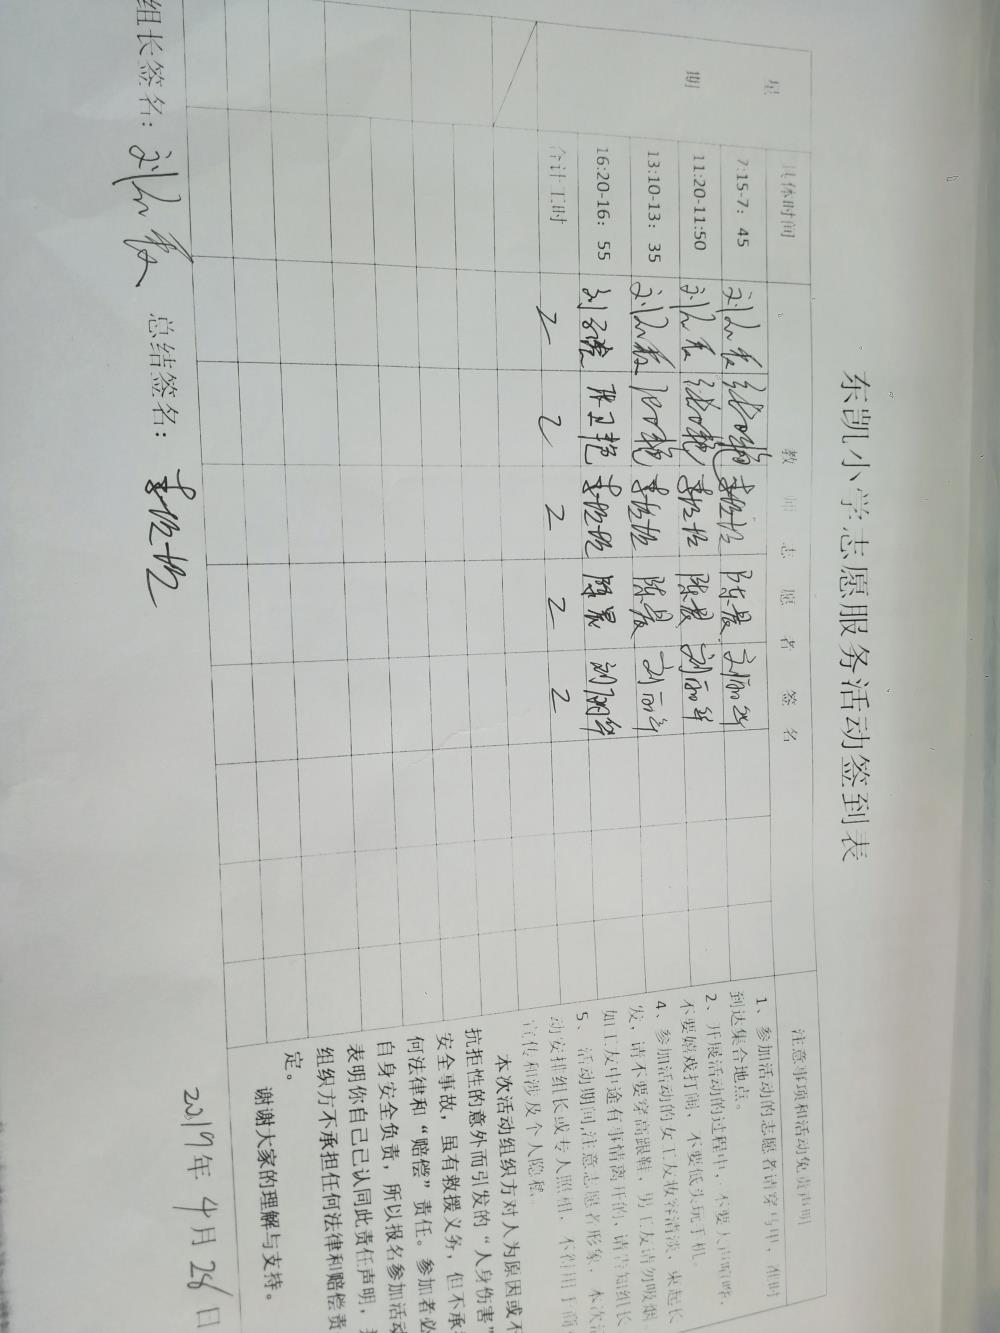 东凯小学志愿服务活动签到表
星期
具体时间
教师志愿者签名
注意事项和活动免责声明
7:15-7：45
陈晨 刘丽华
11:20-11:50
陈晨 刘丽华
13:10-13：35
陈晨 刘丽华
16:20-16：55
张卫艳 陈晨 刘丽华
合计工时 2 2 2 2 2
1、参加活动的志愿者请穿马甲，准时
到达集合地点。
2、开展活动的过程中，不要大声喧哗，
不要嬉戏打闹，不要低头玩手机。
4、参加活动的女工友妆容清淡，束起长
发，请不要穿高跟鞋，男工友请勿吸烟。
如工友中途有事情离开的，请告知组长
5、活动期间,注意志愿者形象，本次活
动安排组长或专人照相，不得用于商
宣传和涉及个人隐私。
本次活动组织方对人为原因或不
抗拒性的意外而引发的“人身伤害”
安全事故，虽有救援义务，但不承
何法律和“赔偿”责任。参加者必
自身安全负责，所以报名参加活动
表明你自己已认同此责任声明，
组织方不承担任何法律和赔偿责
定。
谢谢大家的理解与支持。
组长签名： 总结签名：
2019年4月26日